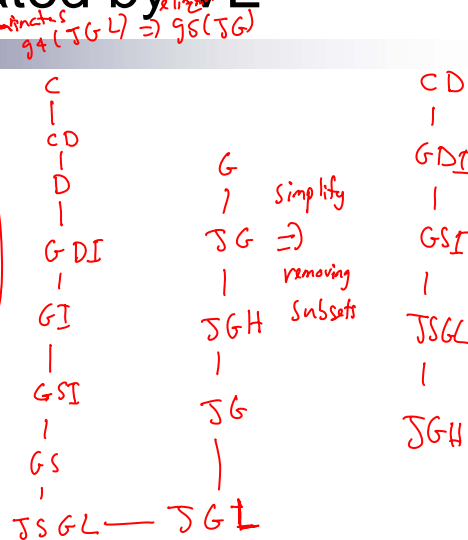 ated by VE
g4(JGL) => g5(JG)
C
CD
D
GDI
GI
GSI
GS
JSGL
G
JG
JGH
JG
JGL
simplify
=>
removing
subsets
CD
GDI
GSI
JSGL
JGH